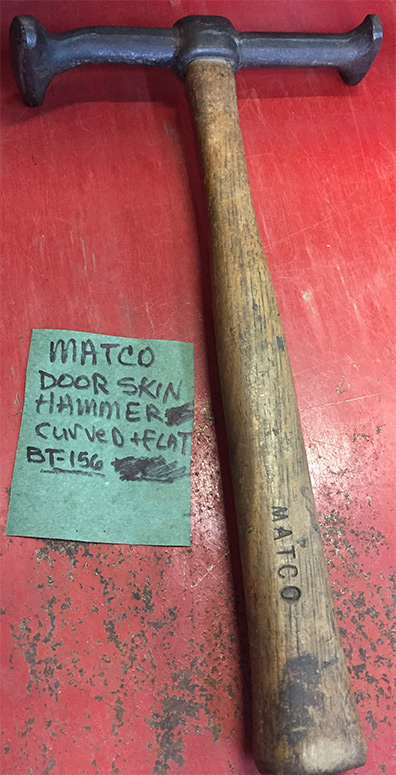 MATCO
DOOR SKIN
HAMMER
CURVED + FLAT
BT-156
MATCO